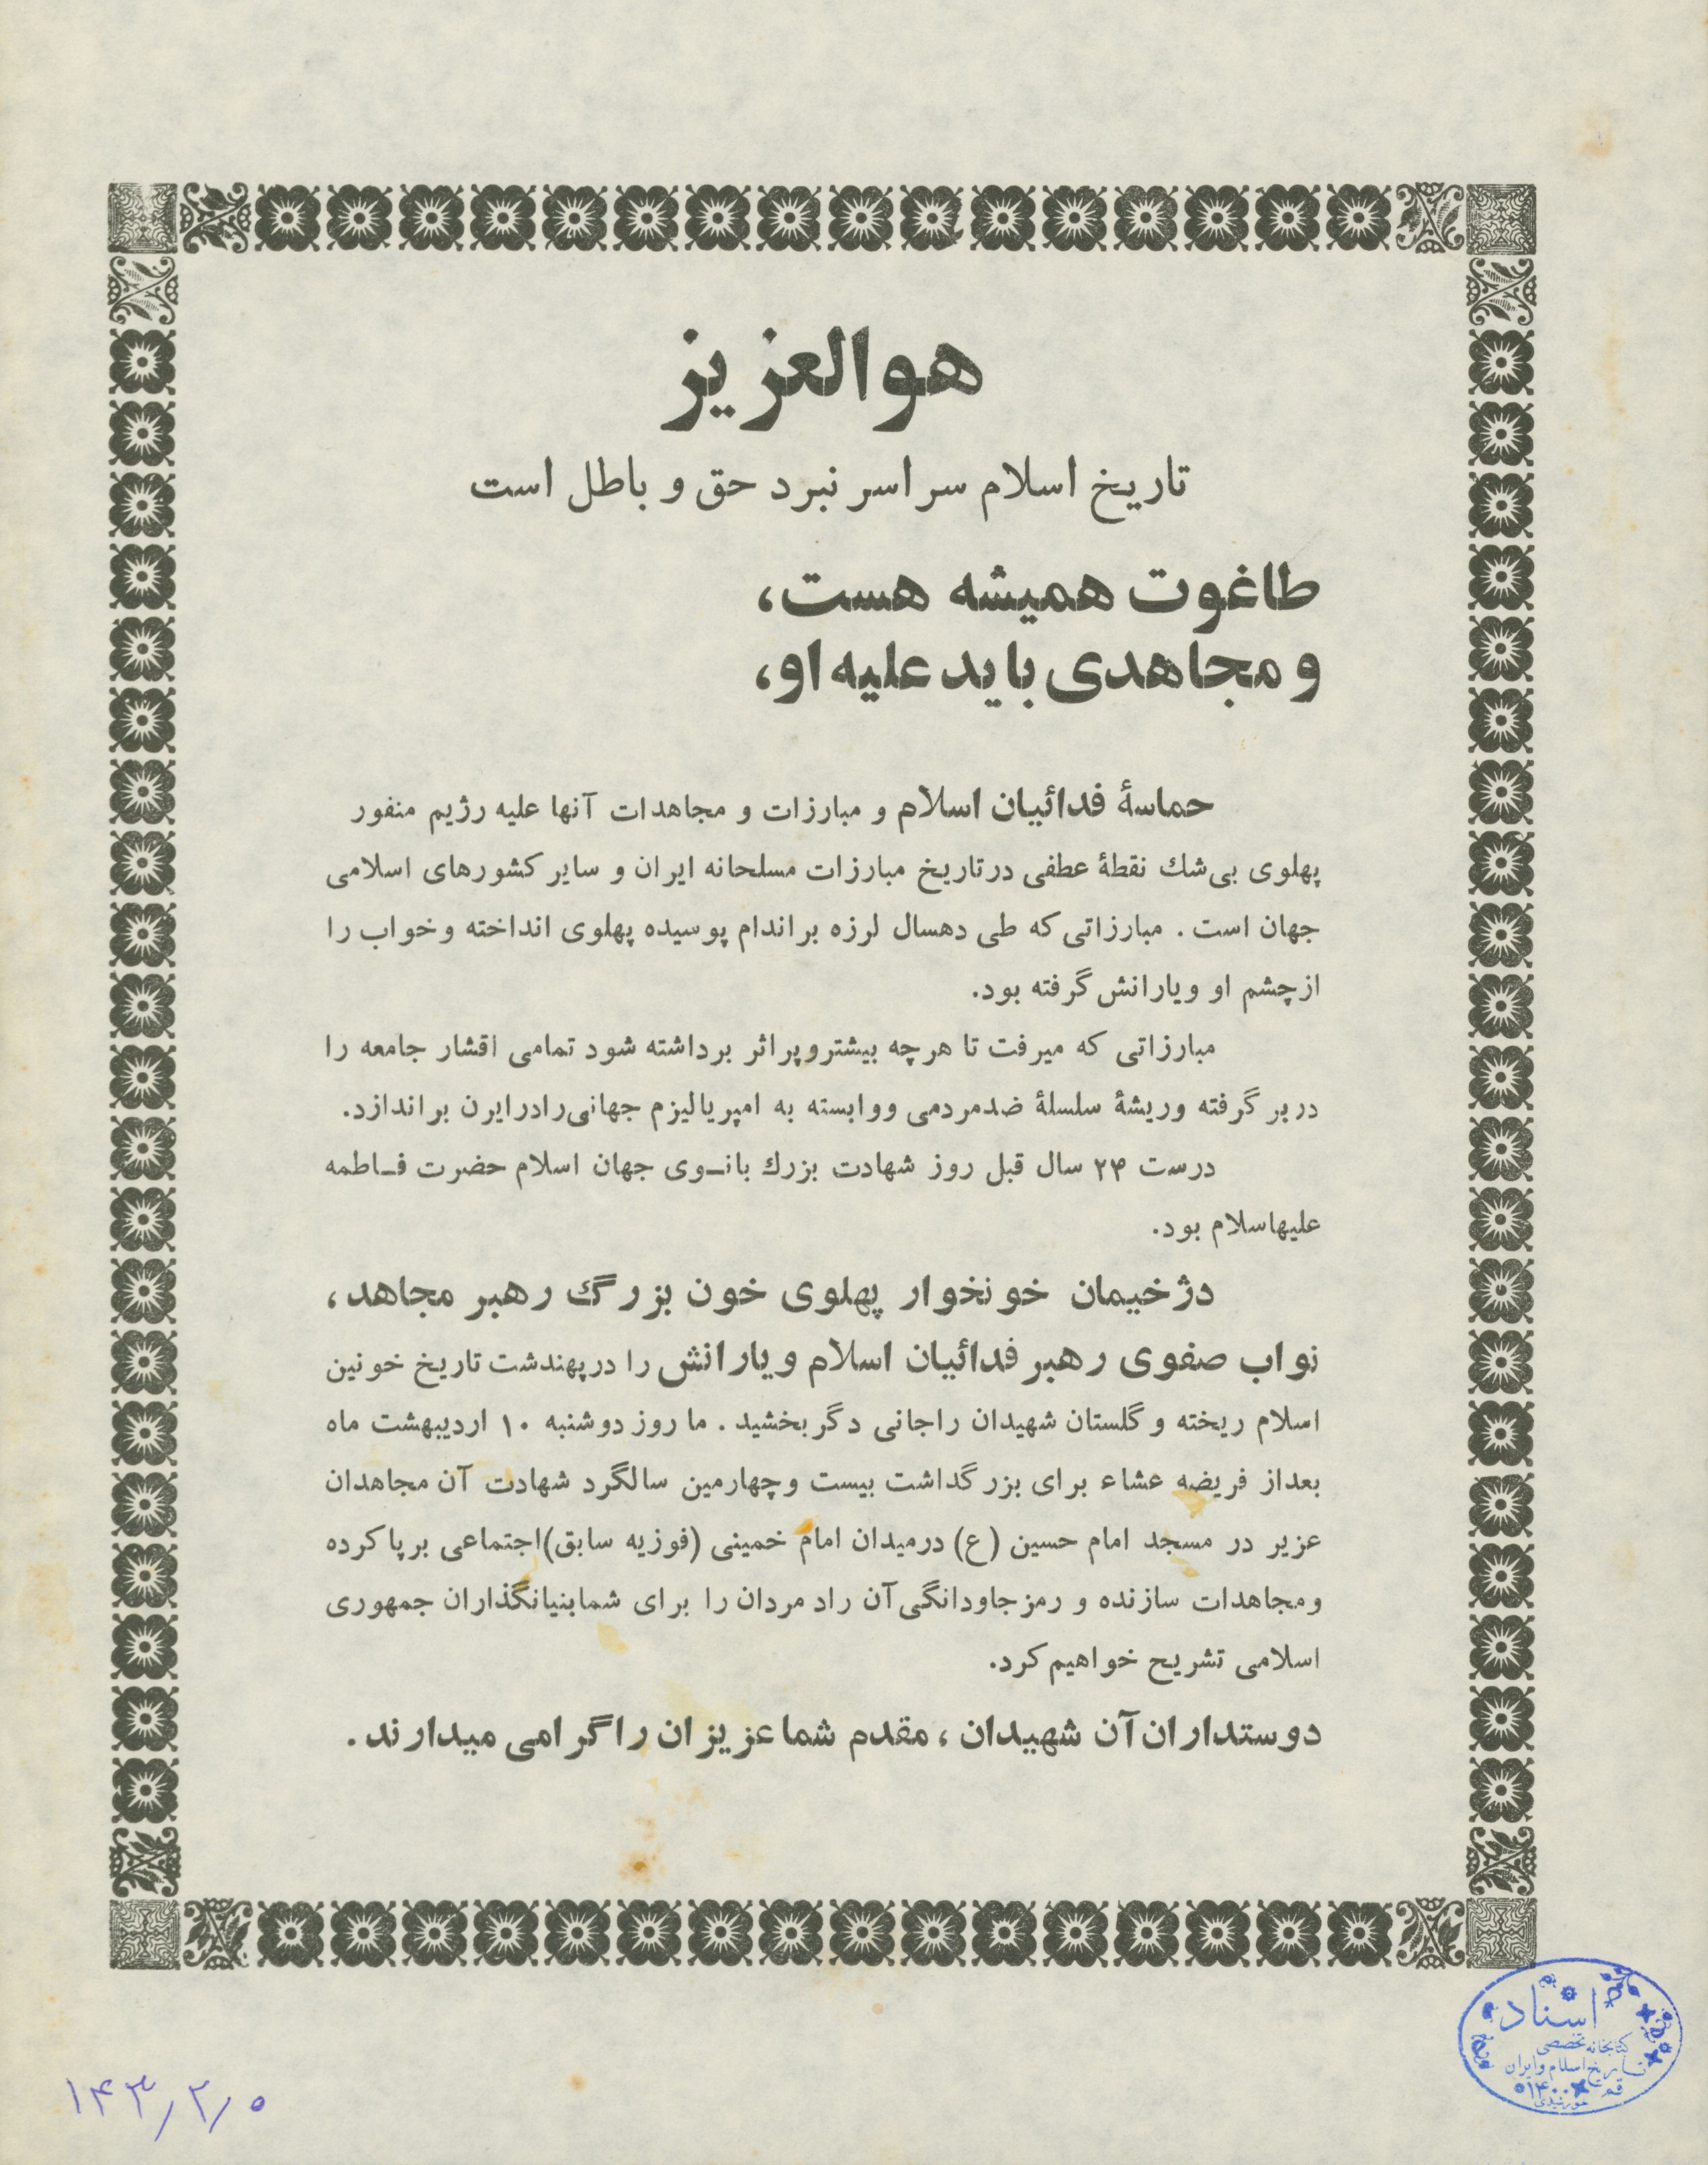 هوالعزیز
تاریخ اسلام سراسر نبرد حق و باطل است
طاغوت همیشه هست،
و مجاهدی باید علیه او،
حماسهٔ فدائیان اسلام و مبارزات و مجاهدات آنها علیه رژیم منفور
پهلوی بی‌شك نقطهٔ عطفی در تاریخ مبارزات مسلحانه ایران و سایر کشورهای اسلامی
جهان است . مبارزاتی که طی دهسال لرزه بر اندام پوسیده پهلوی انداخته و خواب را
از چشم او و یارانش گرفته بود.
مبارزاتی که میرفت تا هرچه بیشتر و پر اثر برداشته شود تمامی اقشار جامعه را
در بر گرفته و ریشهٔ سلسلهٔ ضدمردمی و وابسته به امپریالیزم جهانی را در ایرن بر اندازد.
درست ۲۴ سال قبل روز شهادت بزرك بانـوی جهان اسلام حضرت فـاطمه
علیهاسلام بود.
دژخیمان خونخوار پهلوی خون بزرگ رهبر مجاهد،
نواب صفوی رهبر فدائیان اسلام و یارانش را در پهندشت تاریخ خونین
اسلام ریخته و گلستان شهیدان را جانی دگر بخشید . ما روز دوشنبه ۱۰ اردیبهشت ماه
بعداز فریضه عشاء برای بزرگداشت بیست و چهارمین سالگرد شهادت آن مجاهدان
عزیر در مسجد امام حسین (ع) در میدان امام خمینی (فوزیه سابق) اجتماعی برپا کرده
و مجاهدات سازنده و رمز جاودانگی آن راد مردان را برای شما بنیانگذاران جمهوری
اسلامی تشریح خواهیم کرد.
دوستداران آن شهیدان ، مقدم شما عزیزان را گرامی میدارند .
اسناد
کتابخانه تخصصی
تاریخ اسلام و ایران
قم
۱۴۳/۲/۰